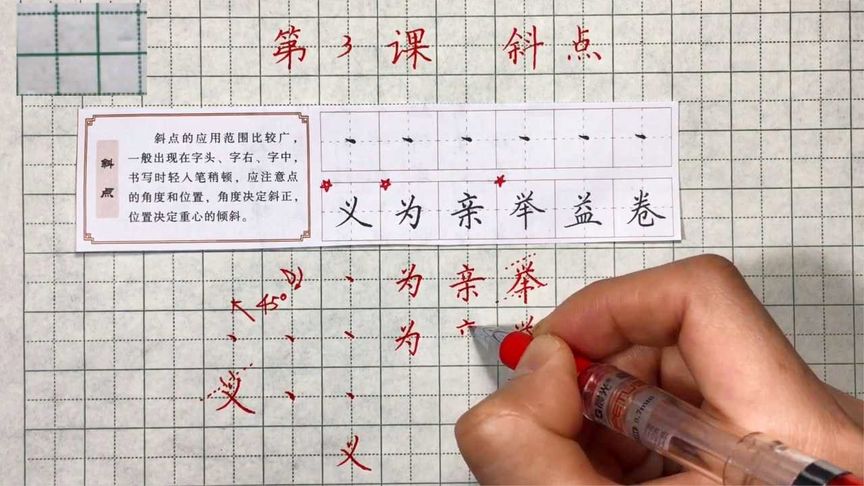 第 3 课 斜 点
斜点
斜点的应用范围比较广，
一般出现在字头、字右、字中，
书写时轻入笔稍顿，应注意点
的角度和位置，角度决定斜正，
位置决定重心的倾斜。
丶 丶 丶 丶 丶 丶
义 为 亲 举 益 卷
丶 为 亲 举
45°
丶 丶 丶 为
义 丶 丶
义